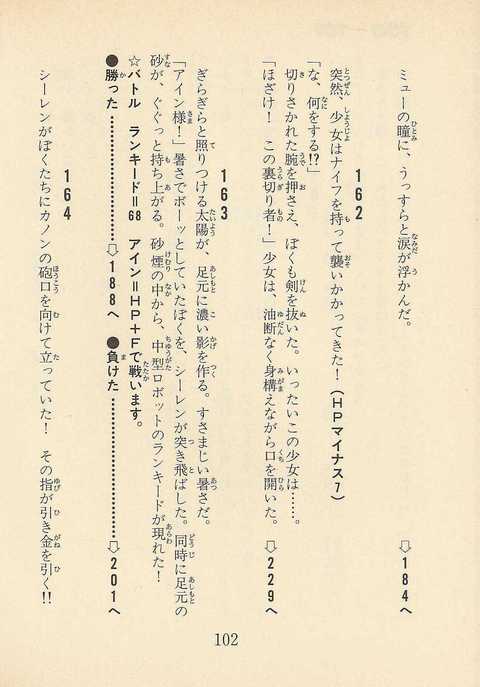 ミューの瞳に、うっすらと涙が浮かんだ。
⇨184へ
162
突然、少女はナイフを持って襲いかかってきた！（HPマイナス7）
「な、何をする!?」
切りさかれた腕を押さえ、ぼくも剣を抜いた。いったいこの少女は……。
「ほざけ！　この裏切り者！」少女は、油断なく身構えながら口を開いた。
⇨229へ
163
ぎらぎらと照りつける太陽が、足元に濃い影を作る。すさまじい暑さだ。
「アイン様！」暑さでボーッとしていたぼくを、シーレンが突き飛ばした。同時に足元の
砂が、ぐぐっと持ち上がる。砂煙の中から、中型ロボットのランキードが現れた！
☆バトル　ランキード＝68　アイン＝HP＋Fで戦います。
●勝った……………………⇨188へ　●負けた……………………⇨201へ
164
シーレンがぼくたちにカノンの砲口を向けて立っていた！　その指が引き金を引く!!
102